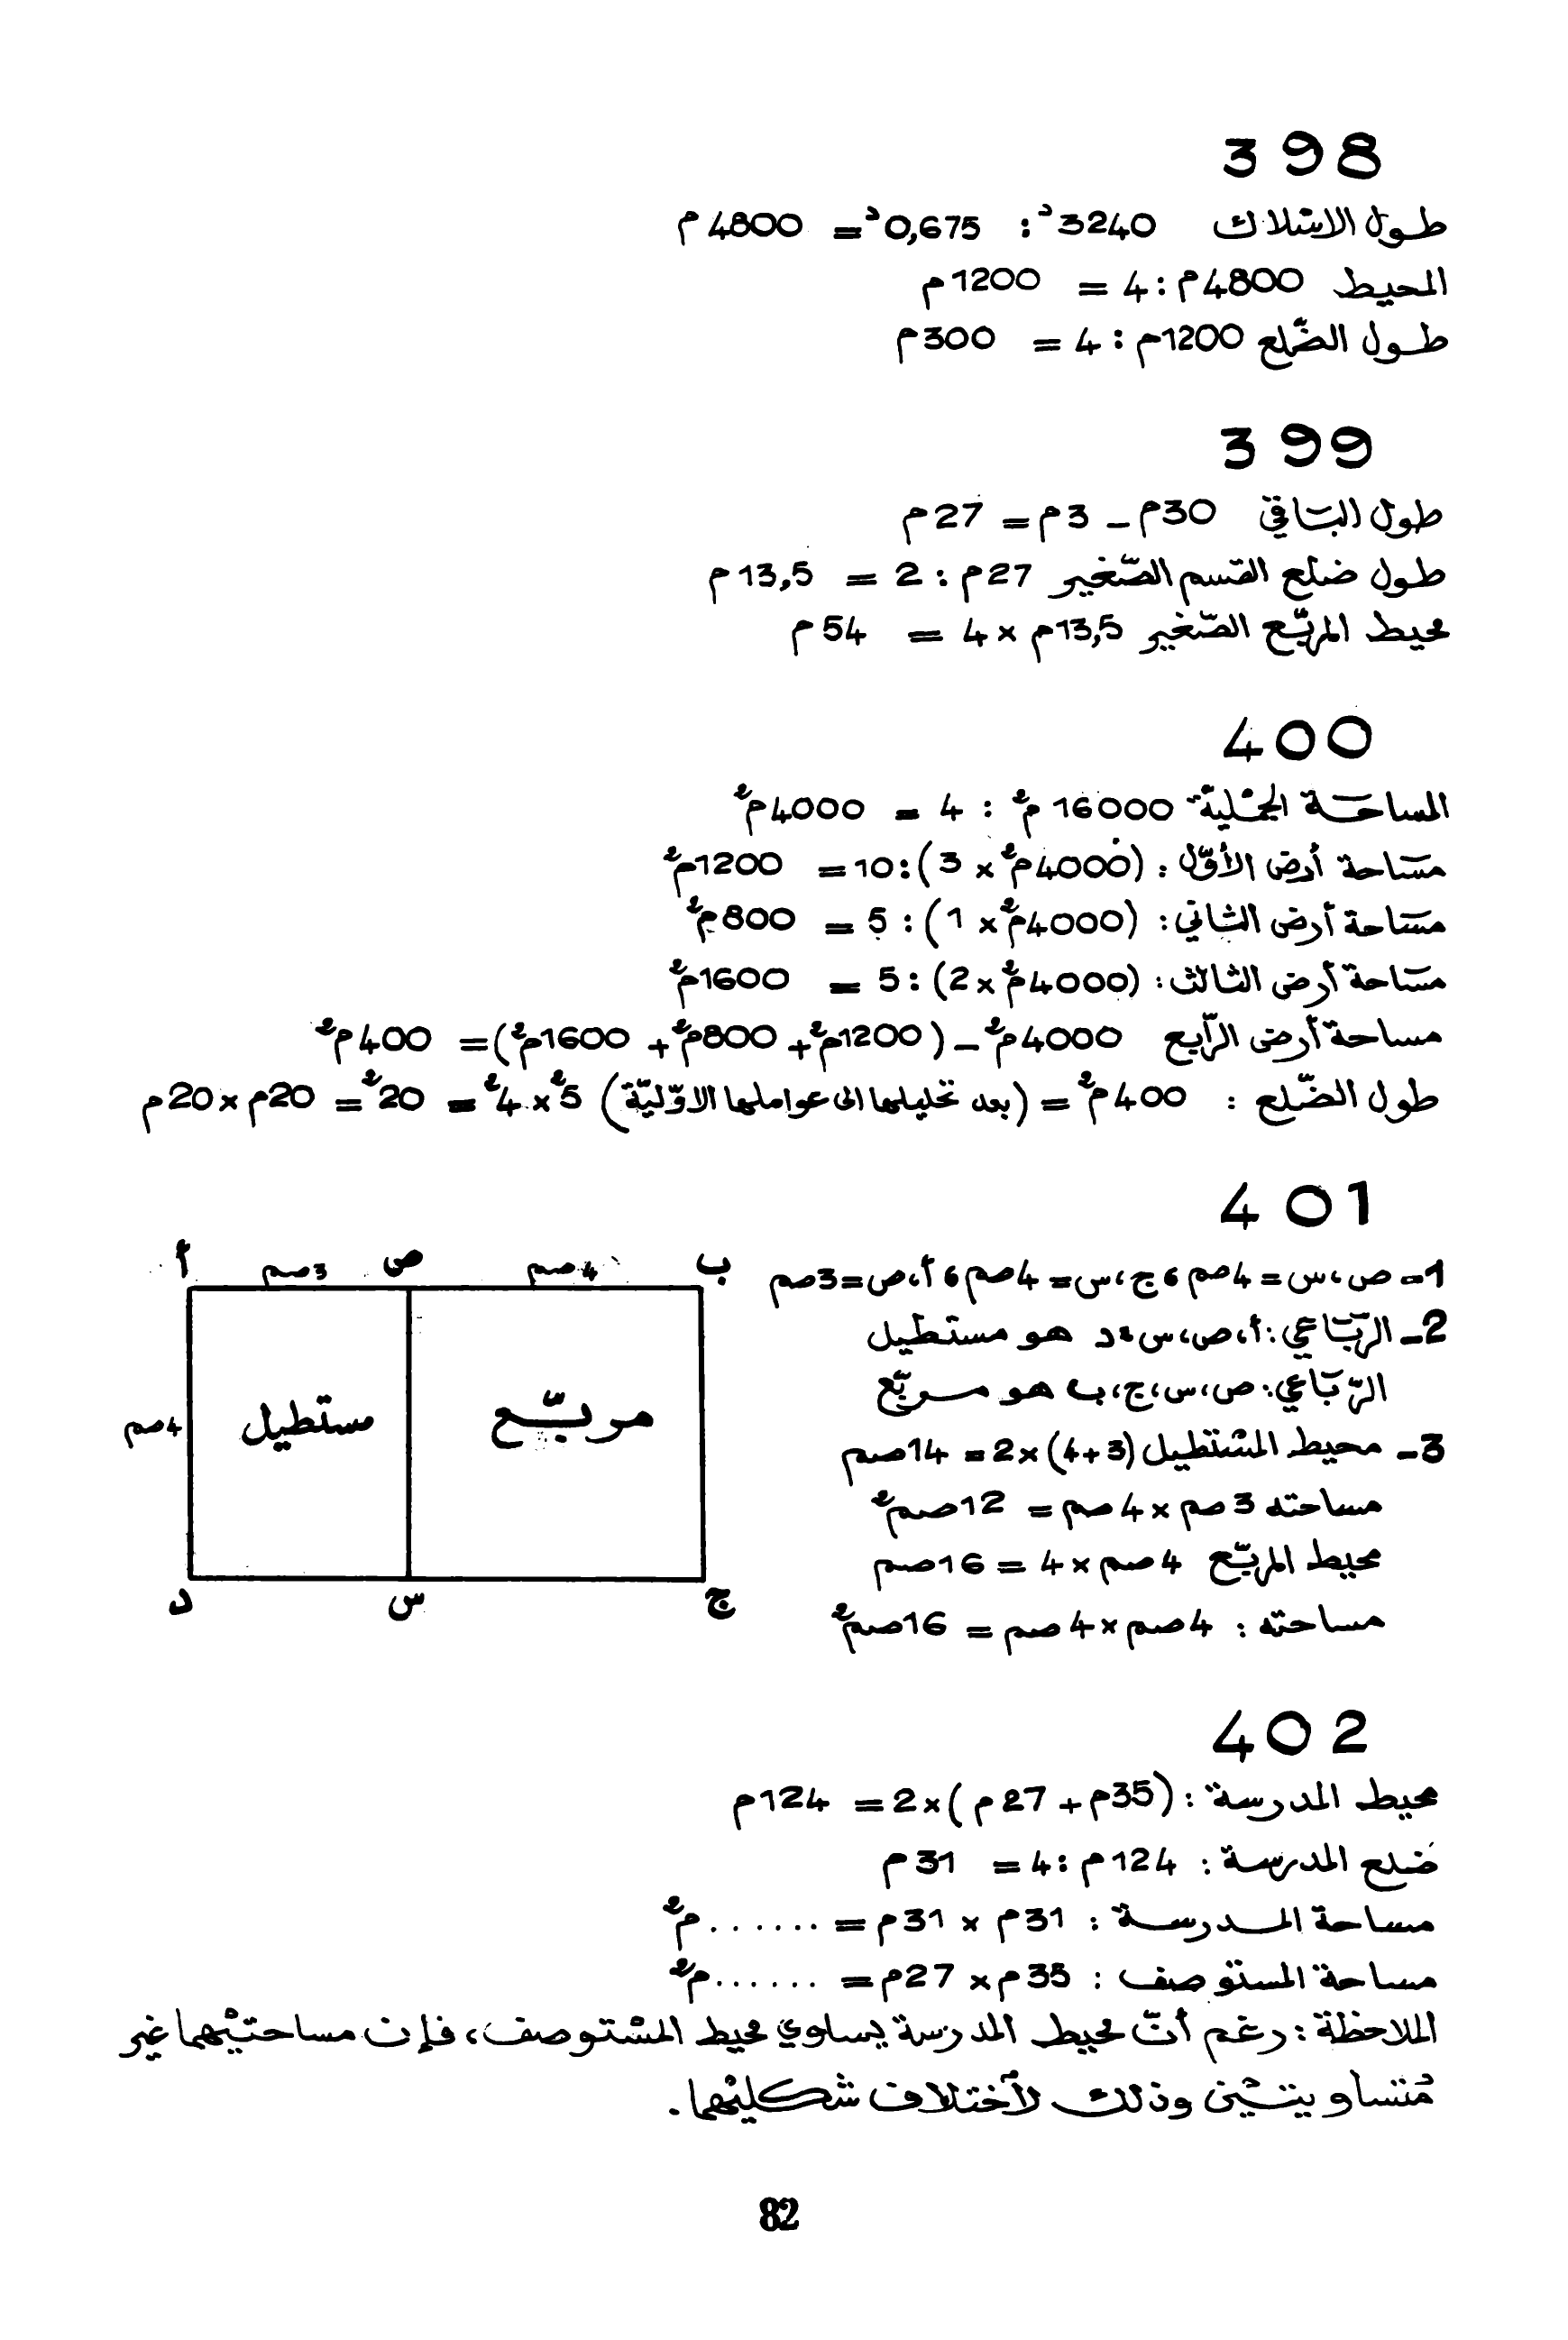 398
طول الاسلاك 3240د : 0,675د = 4800م
المحيط 4800م : 4 = 1200م
طول الضّلع 1200م : 4 = 300م
399
طول الباقي 30م – 3م = 27م
طول ضلع القسم الصّغير 27م : 2 = 13,5م
محيط المربّع الصّغير 13,5م × 4 = 54م
400
المساحة الجمليّة 16000م² : 4 = 4000م²
مساحة أرض الأوّل : (4000م² × 3) : 10 = 1200م²
مساحة أرض الثاني : (4000م² × 1) : 5 = 800م²
مساحة أرض الثالث : (4000م² × 2) : 5 = 1600م²
مساحة أرض الرّابع 4000م² – (1200م² + 800م² + 1600م²) = 400م²
طول الضّلع : 400م² = (بعد تحليلها الى عواملها الاوّليّة) 5² × 4² = 20² = 20م × 20م
401
1- ص،س = 4صم ، ج،س = 4صم ، أ،ص = 3صم
2- الرّبّاعي : أ،ص،س،د هو مستطيل
الرّبّاعي : ص،س،ج،ب هو مربّع
3- محيط المستطيل (3+4) × 2 = 14صم
مساحته 3صم × 4صم = 12صم²
محيط المربّع 4صم × 4 = 16صم
مساحته : 4صم × 4صم = 16صم²
ب 4صم ص 3صم أ
مربّع مستطيل 4صم
ج س د
402
محيط المدرسة : (35م + 27م) × 2 = 124م
ضلع المدرسة : 124م : 4 = 31م
مساحة المدرسة : 31م × 31م = ......م²
مساحة المستوصف : 35م × 27م = ......م²
الملاحظة : رغم أنّ محيط المدرسة يساوي محيط المستوصف، فإن مساحتيهما غير
متساويتين وذلك لاختلاف شكليهما.
82